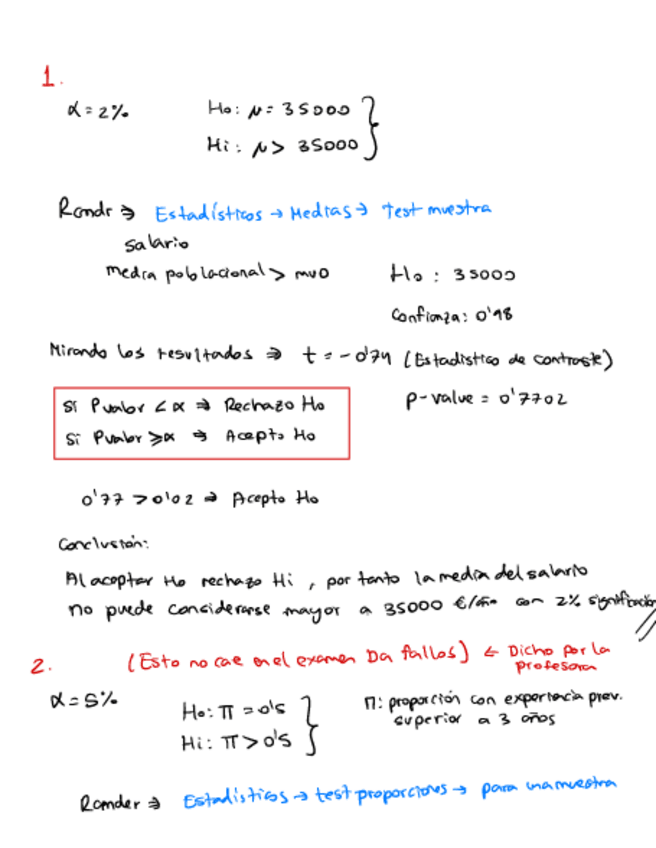 1.
α = 2%
Ho: μ = 35000
Hi: μ > 35000
Rcmdr ⇒ Estadísticos → Medias → Test muestra
salario
media poblacional > mu0
Ho: 35000
Confianza: 0'98
Mirando los resultados ⇒ t = -0'74 (Estadístico de contraste)
Si Pvalor < α ⇒ Rechazo Ho
p-value = 0'7702
Si Pvalor ≥ α ⇒ Acepto Ho
0'77 > 0'02 ⇒ Acepto Ho
Conclusión:
Al aceptar Ho rechazo Hi, por tanto la media del salario
no puede considerarse mayor a 35000 €/año con 2% significación
2. (Esto no cae en el examen Da fallos) ← Dicho por la
profesora
α = 5%
Ho: π = 0'5
Hi: π > 0'5
π: proporción con experiencia prev.
superior a 3 años
Rcmder ⇒ Estadísticos → test proporciones → para una muestra